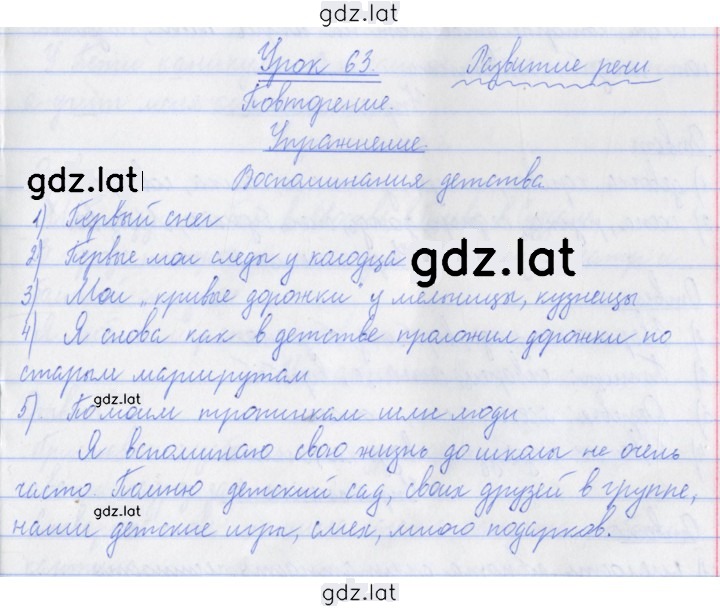 gdz.lat
Урок 63. Развитие речи
Повторение.
Упражнение.
gdz.lat
Воспоминания детства.
1) Первый снег
2) Первые мои следы у колодца
gdz.lat
3) Мои „кривые дорожки" у мельницы, кузнецы
4) Я снова как в детстве проложил дорожки по
старым маршрутам
gdz.lat
5) По моим тропинкам шли люди
Я вспоминаю свою жизнь до школы не очень
часто. Помню детский сад, своих друзей в группе,
gdz.lat
наши детские игры, смех, много подарков.
gdz.lat